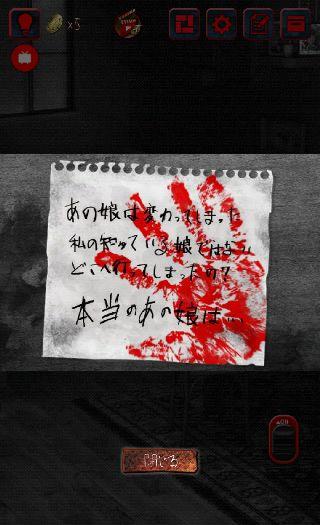 ×3
あの娘は変わってしまった
私の知っている娘ではない
どこへ行ってしまったの？
本当のあの娘は…
閉じる